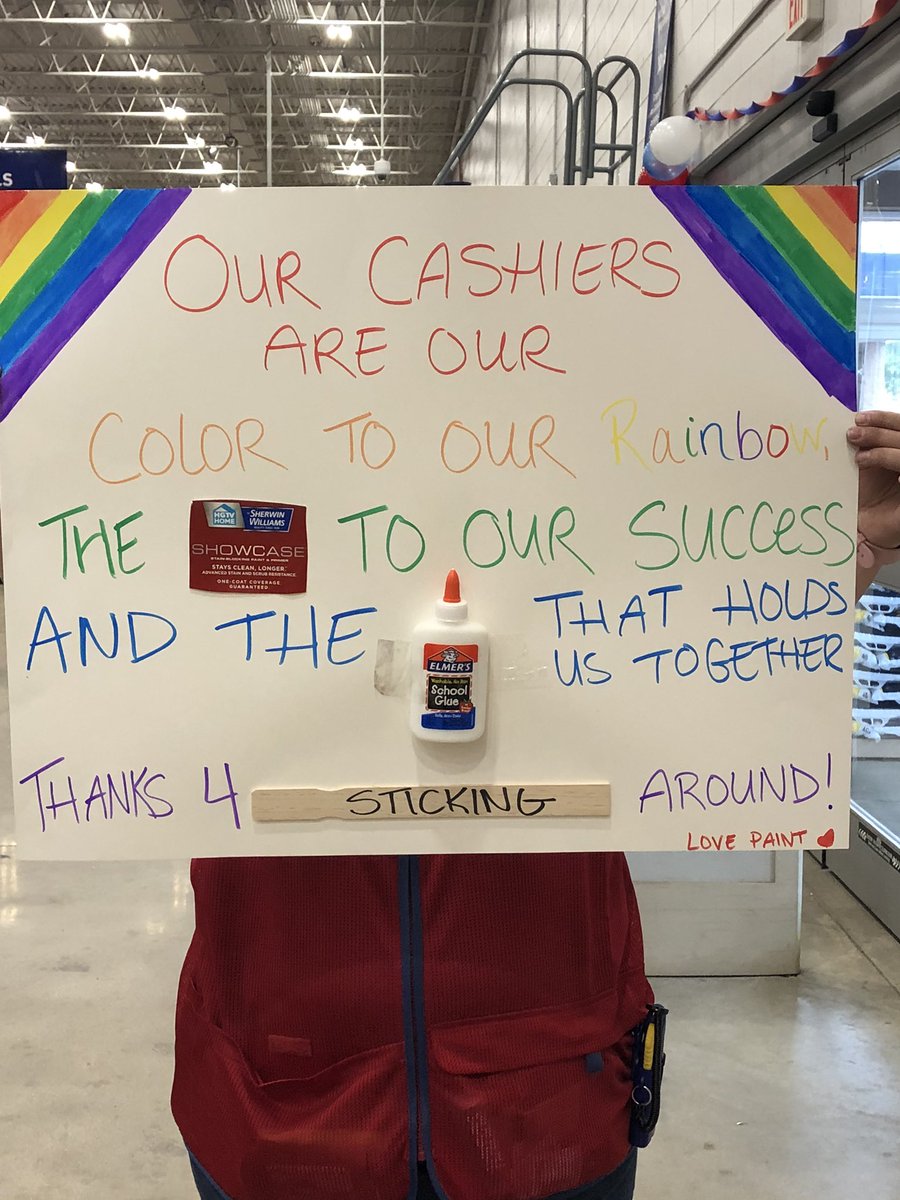 S
EXIT
OUR CASHIERS
ARE OUR
COLOR TO OUR Rainbow,
THE HGTV HOME SHERWIN WILLIAMS SHOWCASE TO OUR SUCCESS
STAIN-BLOCKING PAINT & PRIMER
STAYS CLEAN, LONGER.
ADVANCED STAIN AND SCRUB RESISTANCE
ONE-COAT COVERAGE
GUARANTEED
AND THE ELMER'S THAT HOLDS
US TOGETHER
Washable, No Run
School
Glue
THANKS 4 STICKING AROUND!
LOVE PAINT